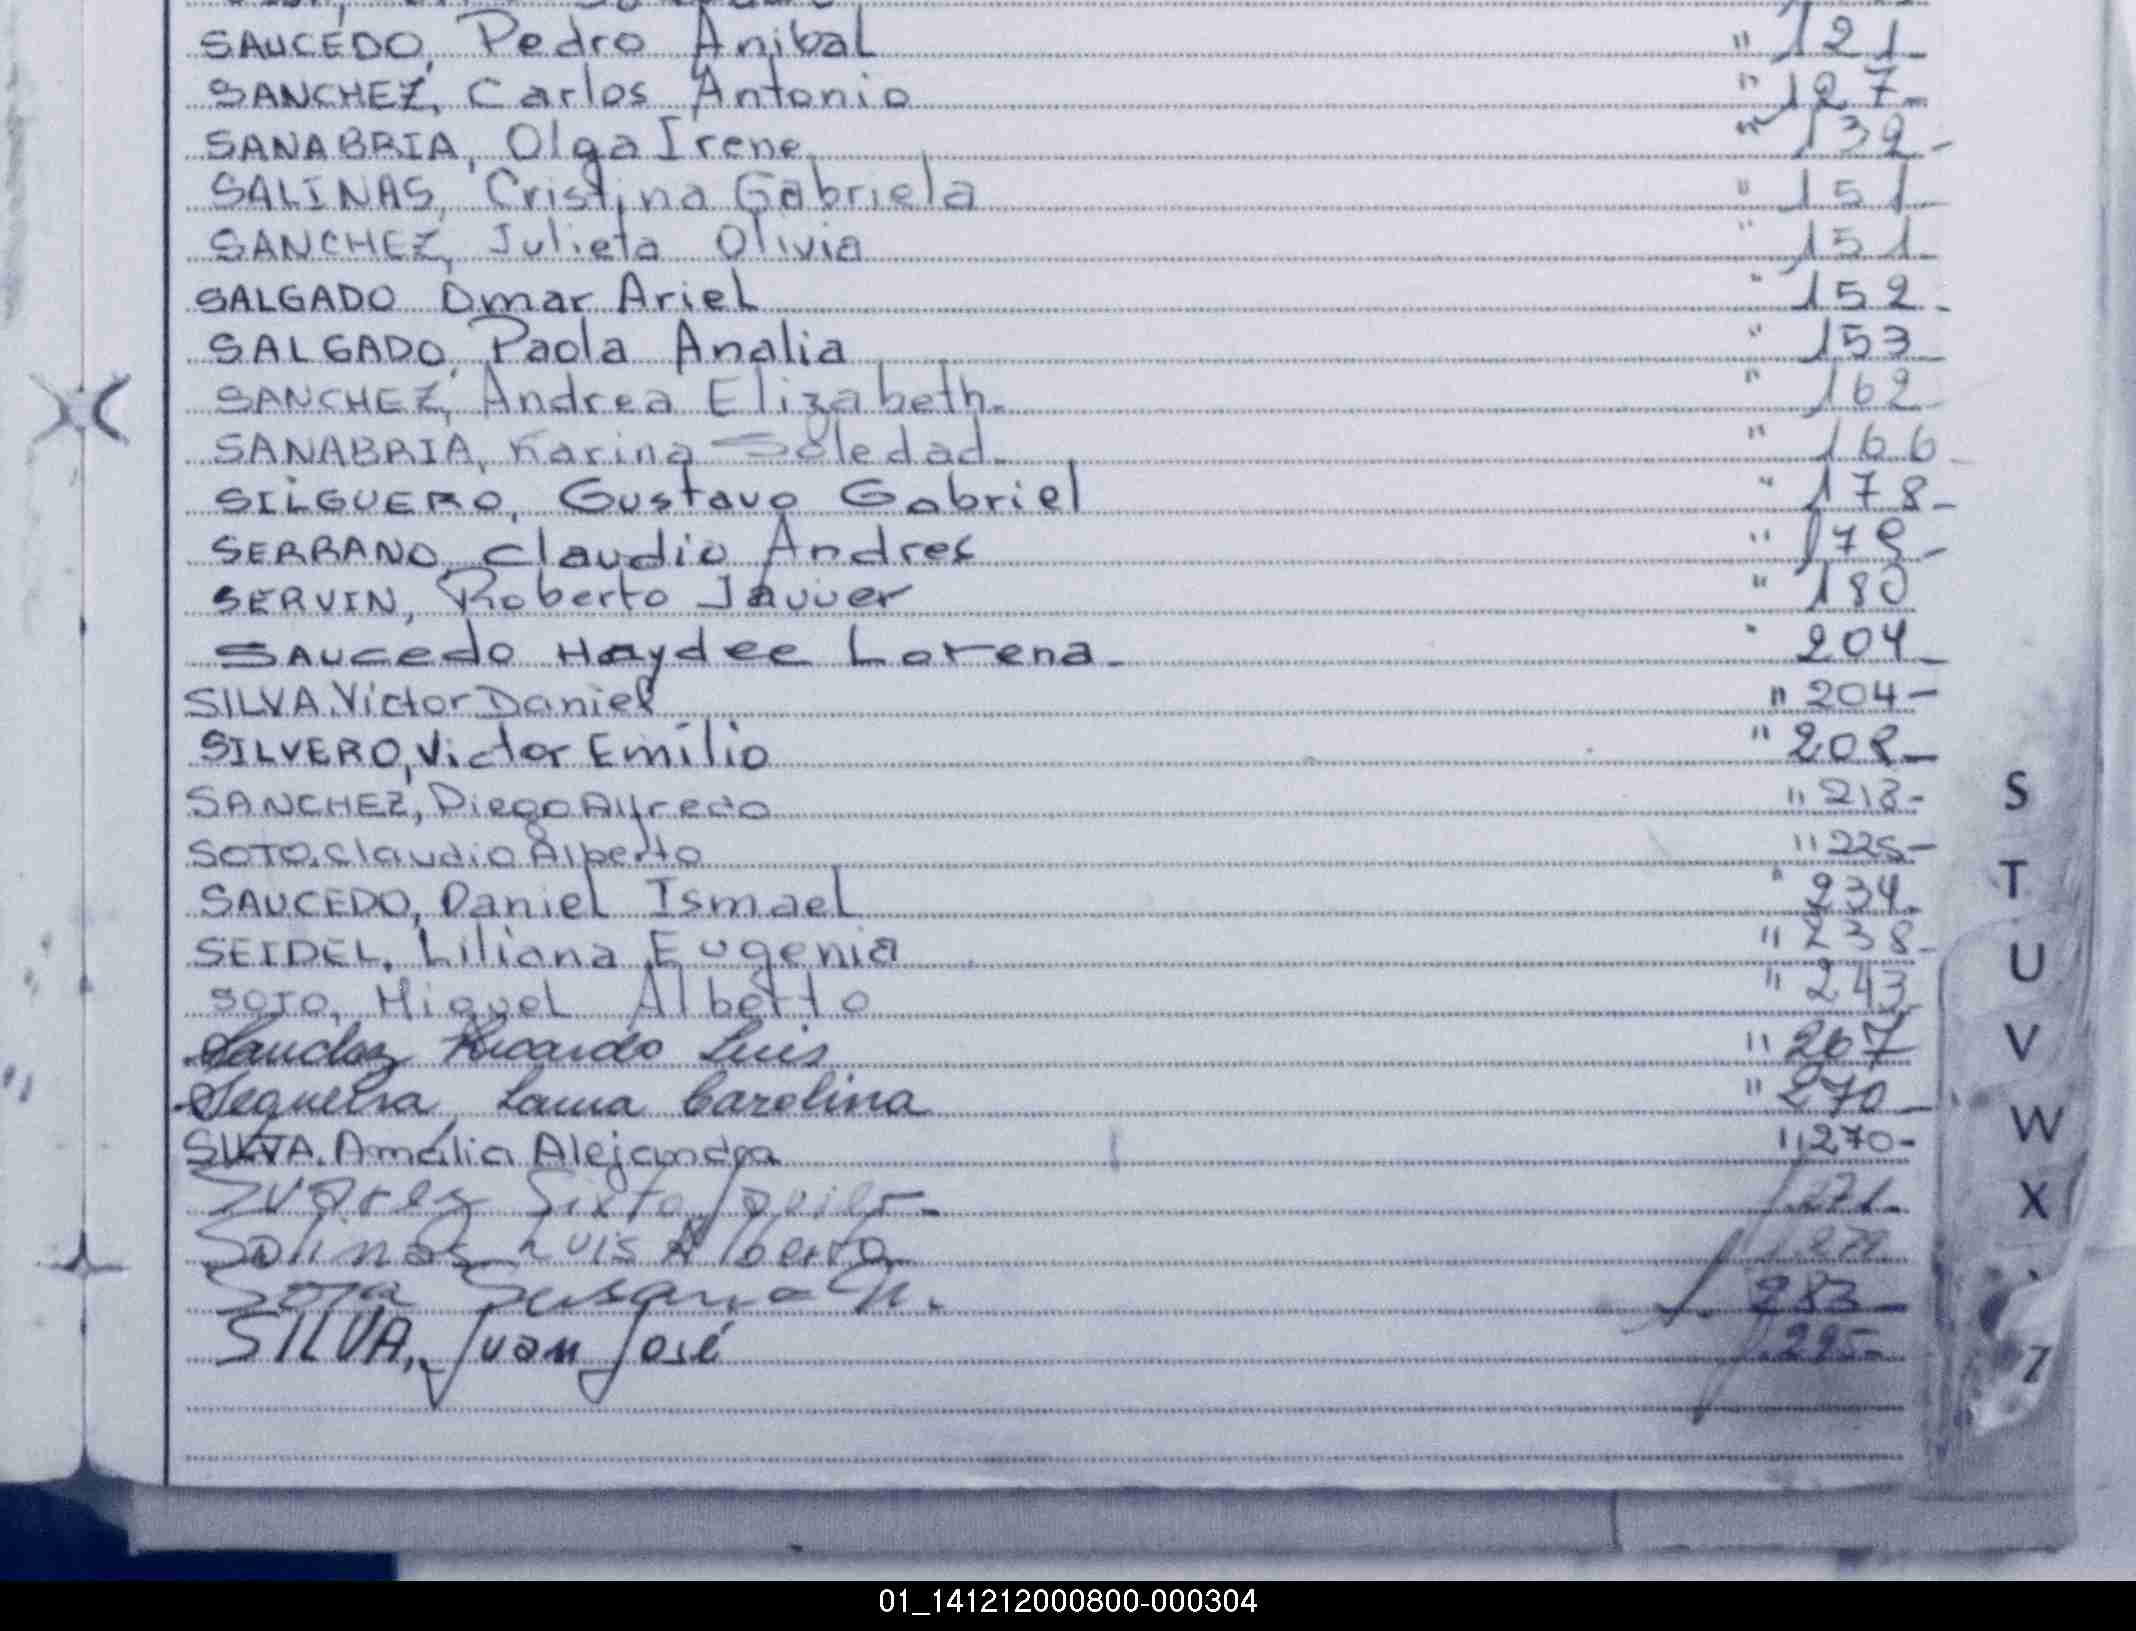 SAUCEDO, Pedro Anibal " 121
SANCHEZ, Carlos Antonio " 127-
SANABRIA, Olga Irene " 139-
SALINAS, Cristina Gabriela " 151-
SANCHEZ, Julieta Olivia " 151-
SALGADO Omar Ariel " 152-
SALGADO, Paola Analia " 153
SANCHEZ, Andrea Elizabeth- " 162
SANABRIA, Karina Soledad- " 166-
SILGUERO, Gustavo Gabriel " 178-
SERRANO, Claudio Andres " 179-
SERVIN, Roberto Javier " 180
SAUCEDO Haydee Lorena- " 204-
SILVA. Victor Daniel " 204-
SILVERO, Victor Emilio " 208-
SANCHEZ, Diego Alfredo " 218-
SOTO, Claudio Alberto " 225-
SAUCEDO, Daniel Ismael " 234-
SEIDEL, Liliana Eugenia " 238-
SOTO, Miguel Alberto " 243
Sanchez Ricardo Luis " 267
Sequeira, Laura Carolina " 270-
SILVA. Amalia Alejandra " 270-
Suarez Sixto Javier- 271-
Salinas Luis Alberto
Sosa Susana 283
SILVA, Juan José 295-
S
T
U
V
W
X
Z
01_141212000800-000304